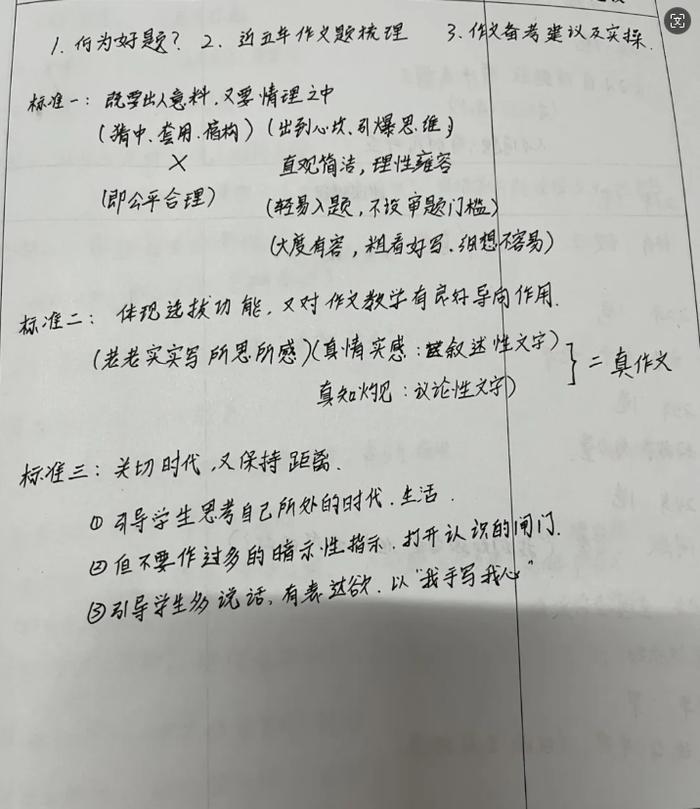 1. 何为好题? 2. 近五年作文题梳理 3. 作文备考建议及实操.
标准一: 既要出人意料, 又要情理之中
(猜中、套用、宿构) (出到心坎、引爆思维)
× 直观简洁, 理性雍容
(即公平合理) (轻易入题, 不设审题门槛)
(大度有容, 粗看好写、细想不容易)
标准二: 体现选拔功能, 又对作文教学有良好导向作用.
(老老实实写所思所感) (真情实感: 叙述性文字)
真知灼见: 议论性文字) } = 真作文
标准三: 关切时代, 又保持距离.
① 引导学生思考自己所处的时代、生活.
② 但不要作过多的暗示性指示, 打开认识的闸门.
③ 引导学生多说话, 有表达欲, 以“我手写我心”